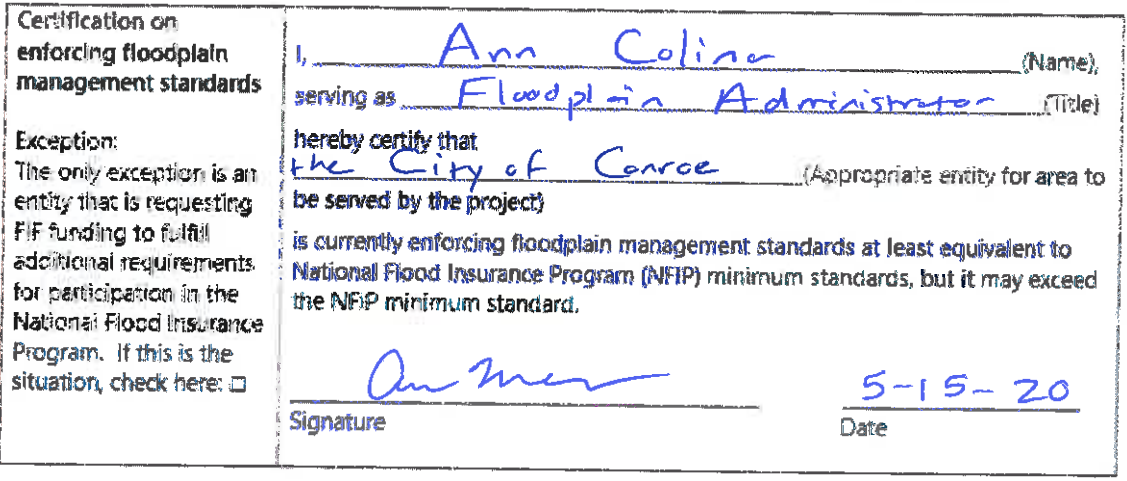 Certification on
enforcing floodplain
management standards
Exception:
The only exception is an
entity that is requesting
FIF funding to fulfill
additional requirements
for participation in the
National Flood Insurance
Program. If this is the
situation, check here: ☐
I, Ann Colina (Name),
serving as Floodplain Administrator (Title)
hereby certify that
the City of Conroe (Appropriate entity for area to
be served by the project)
is currently enforcing floodplain management standards at least equivalent to
National Flood Insurance Program (NFIP) minimum standards, but it may exceed
the NFIP minimum standard.
5-15-20
Signature
Date